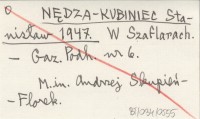 NĘDZA-KUBINIEC Sta-
nisław 1947. W Szaflarach.
- Gaz. Podh. nr 6.
M.in. Andrzej Skupień-
- Florek.